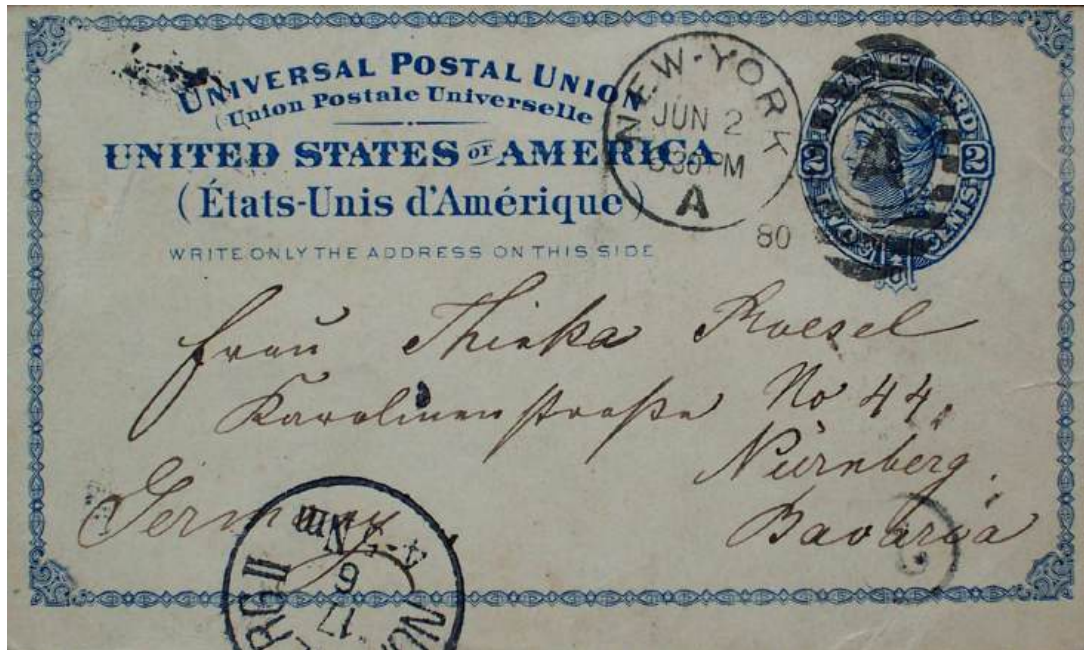 UNIVERSAL POSTAL UNION
(Union Postale Universelle
UNITED STATES OF AMERICA
(États-Unis d'Amérique)
WRITE ONLY THE ADDRESS ON THIS SIDE
NEW-YORK
JUN 2
630PM
A
80
2 2
A
Frau Thekka Roesel
Karolinenstraße No 44.
Nürnberg.
Bavaria
Germany
17
6
4-5 Nm